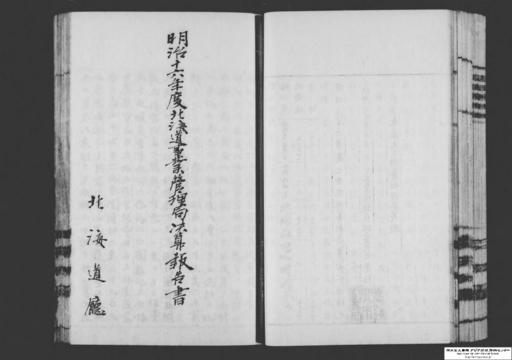 明治十六年度北海道事業管理局决算報告書
北海道廳